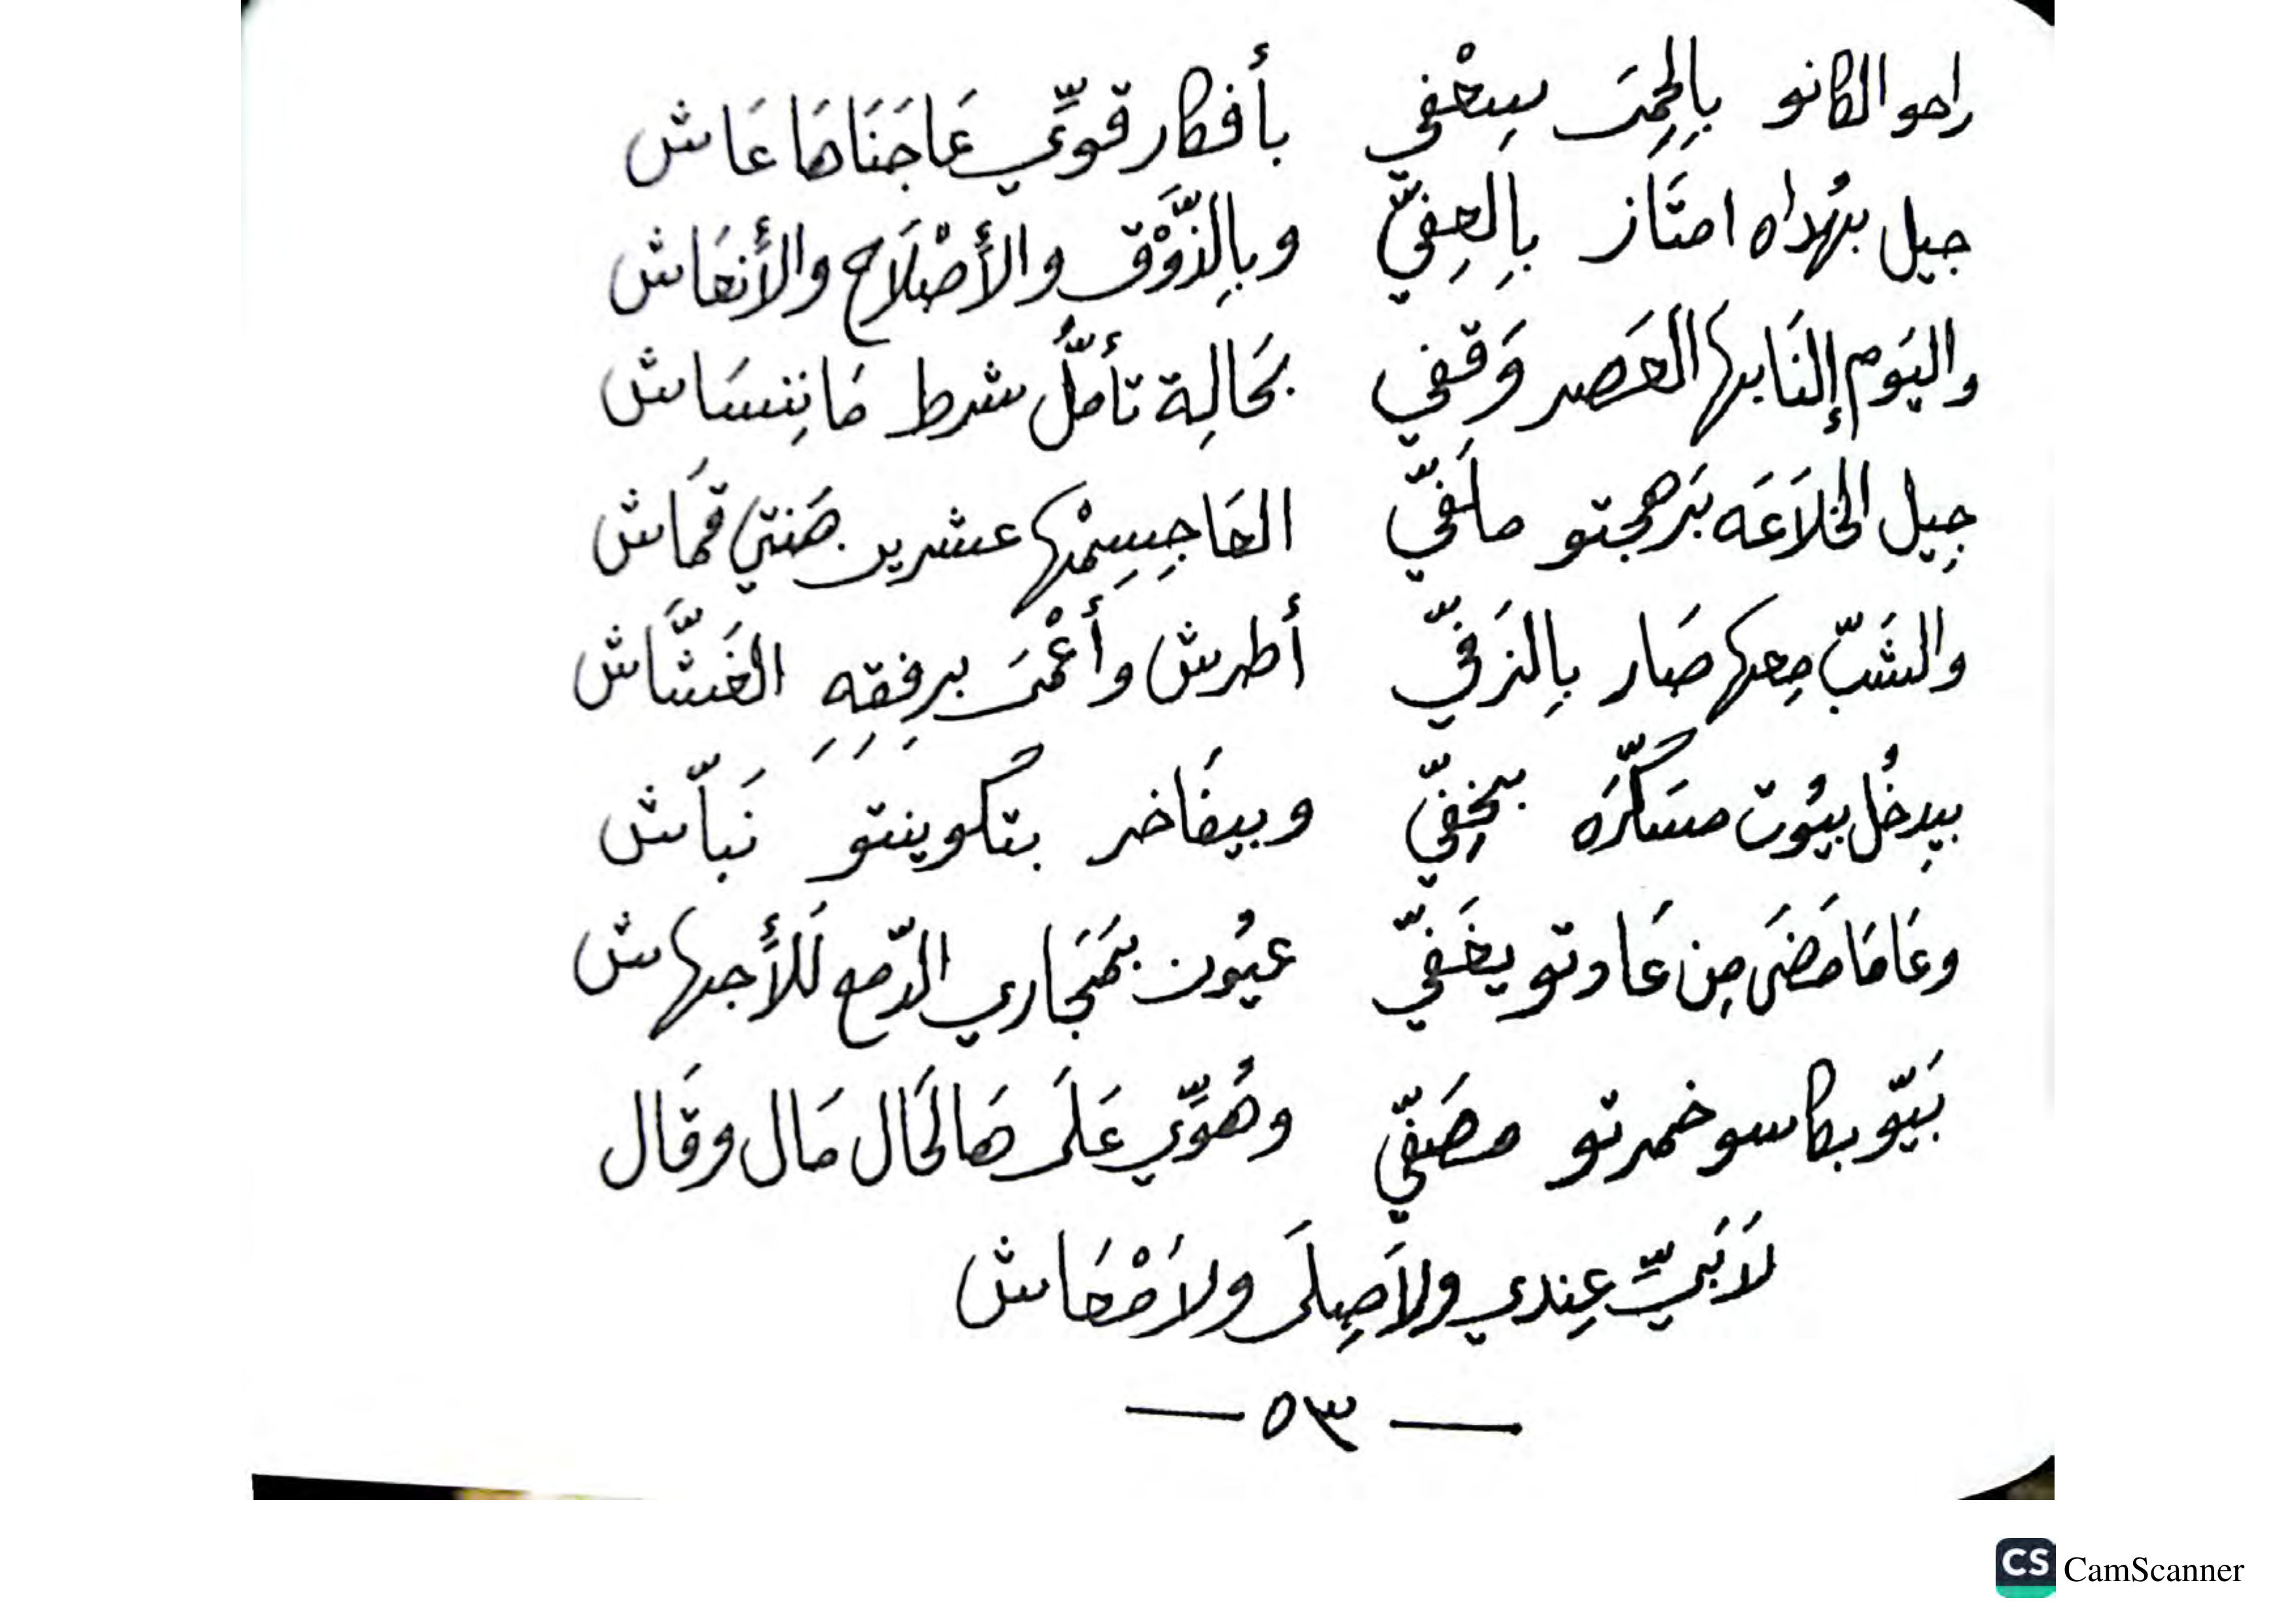 راحو الكانو بِالحِمَى سِعْفي بأفكار قوِّي عَاجَنَاهَا عَاش
جيل بهُداه امتَاز بِالعِفيّ وبِالذَّوْق والأَصْلَاح والأَنعَاش
واليَوم إلنَا بها العَصر وَقفي بحَالِة تأمُّل شرط مَا نِنسَاش
جِيل الخلَاعَه بَهرجتو ملَفيّ العَا جِسِمْها عشرين هَنتي قمَاش
والشَبّ مِعها صَار بِالزَفيّ أطرش وأَعْمَى برفِقِهِ الغَشَّاش
بيِدخُل بيُوت مسَكّرَه بخِفيّ وبيفَاخر بتكوينتو نَبّاش
وعَامَا مَضَى مِن عَادتو يغَفيّ عيُون بمَجَاري الدّمع لَلأَجهاش
بَيّو بكاسو خمرتو مصَفيّ وهُوِّي عَلَى هَالحَال مَال وقَال
لَا بَيِّ عِندي ولَا صِلَى ولَا مْعَاش
— ٥٣ —
CS CamScanner